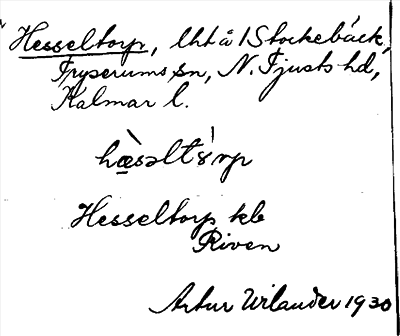 Hesseltorp, lht å 1 Stockebäck,
Fryserums sn, N. Tjusts hd,
Kalmar l.
hæ̀səltórp
Hesseltorp kb
Riven
Artur Wilander 1930